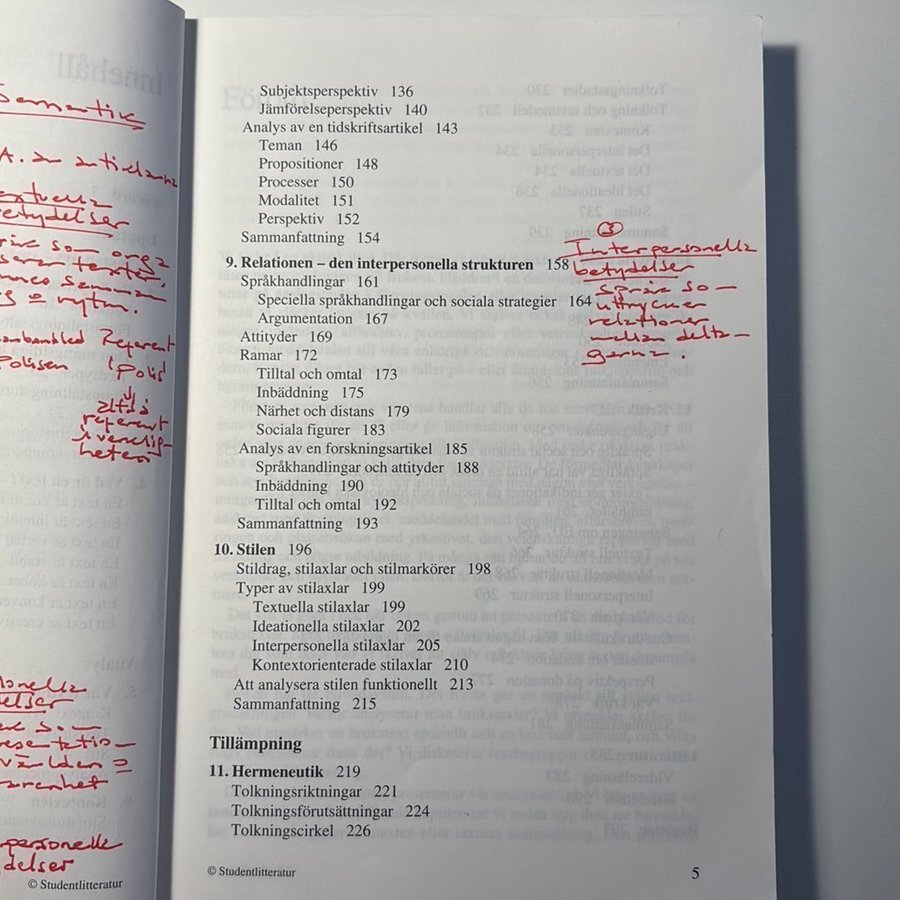 Semantik
Subjektsperspektiv 136
Jämförelseperspektiv 140
Analys av en tidskriftsartikel 143
Teman 146
Propositioner 148
Processer 150
Modalitet 151
Perspektiv 152
Sammanfattning 154
9. Relationen – den interpersonella strukturen 158
Språkhandlingar 161
Speciella språkhandlingar och sociala strategier 164
Argumentation 167
Attityder 169
Ramar 172
Tilltal och omtal 173
Inbäddning 175
Närhet och distans 179
Sociala figurer 183
Analys av en forskningsartikel 185
Språkhandlingar och attityder 188
Inbäddning 190
Tilltal och omtal 192
Sammanfattning 193
10. Stilen 196
Stildrag, stilaxlar och stilmarkörer 198
Typer av stilaxlar 199
Textuella stilaxlar 199
Ideationella stilaxlar 202
Interpersonella stilaxlar 205
Kontextorienterade stilaxlar 210
Att analysera stilen funktionellt 213
Sammanfattning 215
Tillämpning
11. Hermeneutik 219
Tolkningsriktningar 221
Tolkningsförutsättningar 224
Tolkningscirkel 226
© Studentlitteratur
5
3
Interpersonella
betydelser
språk so–
uttrycker
relationer
mellan delta–
garna.
betydelser
Referent
Polisen (polis
alltså
referent
i verklig–
heten
© Studentlitteratur